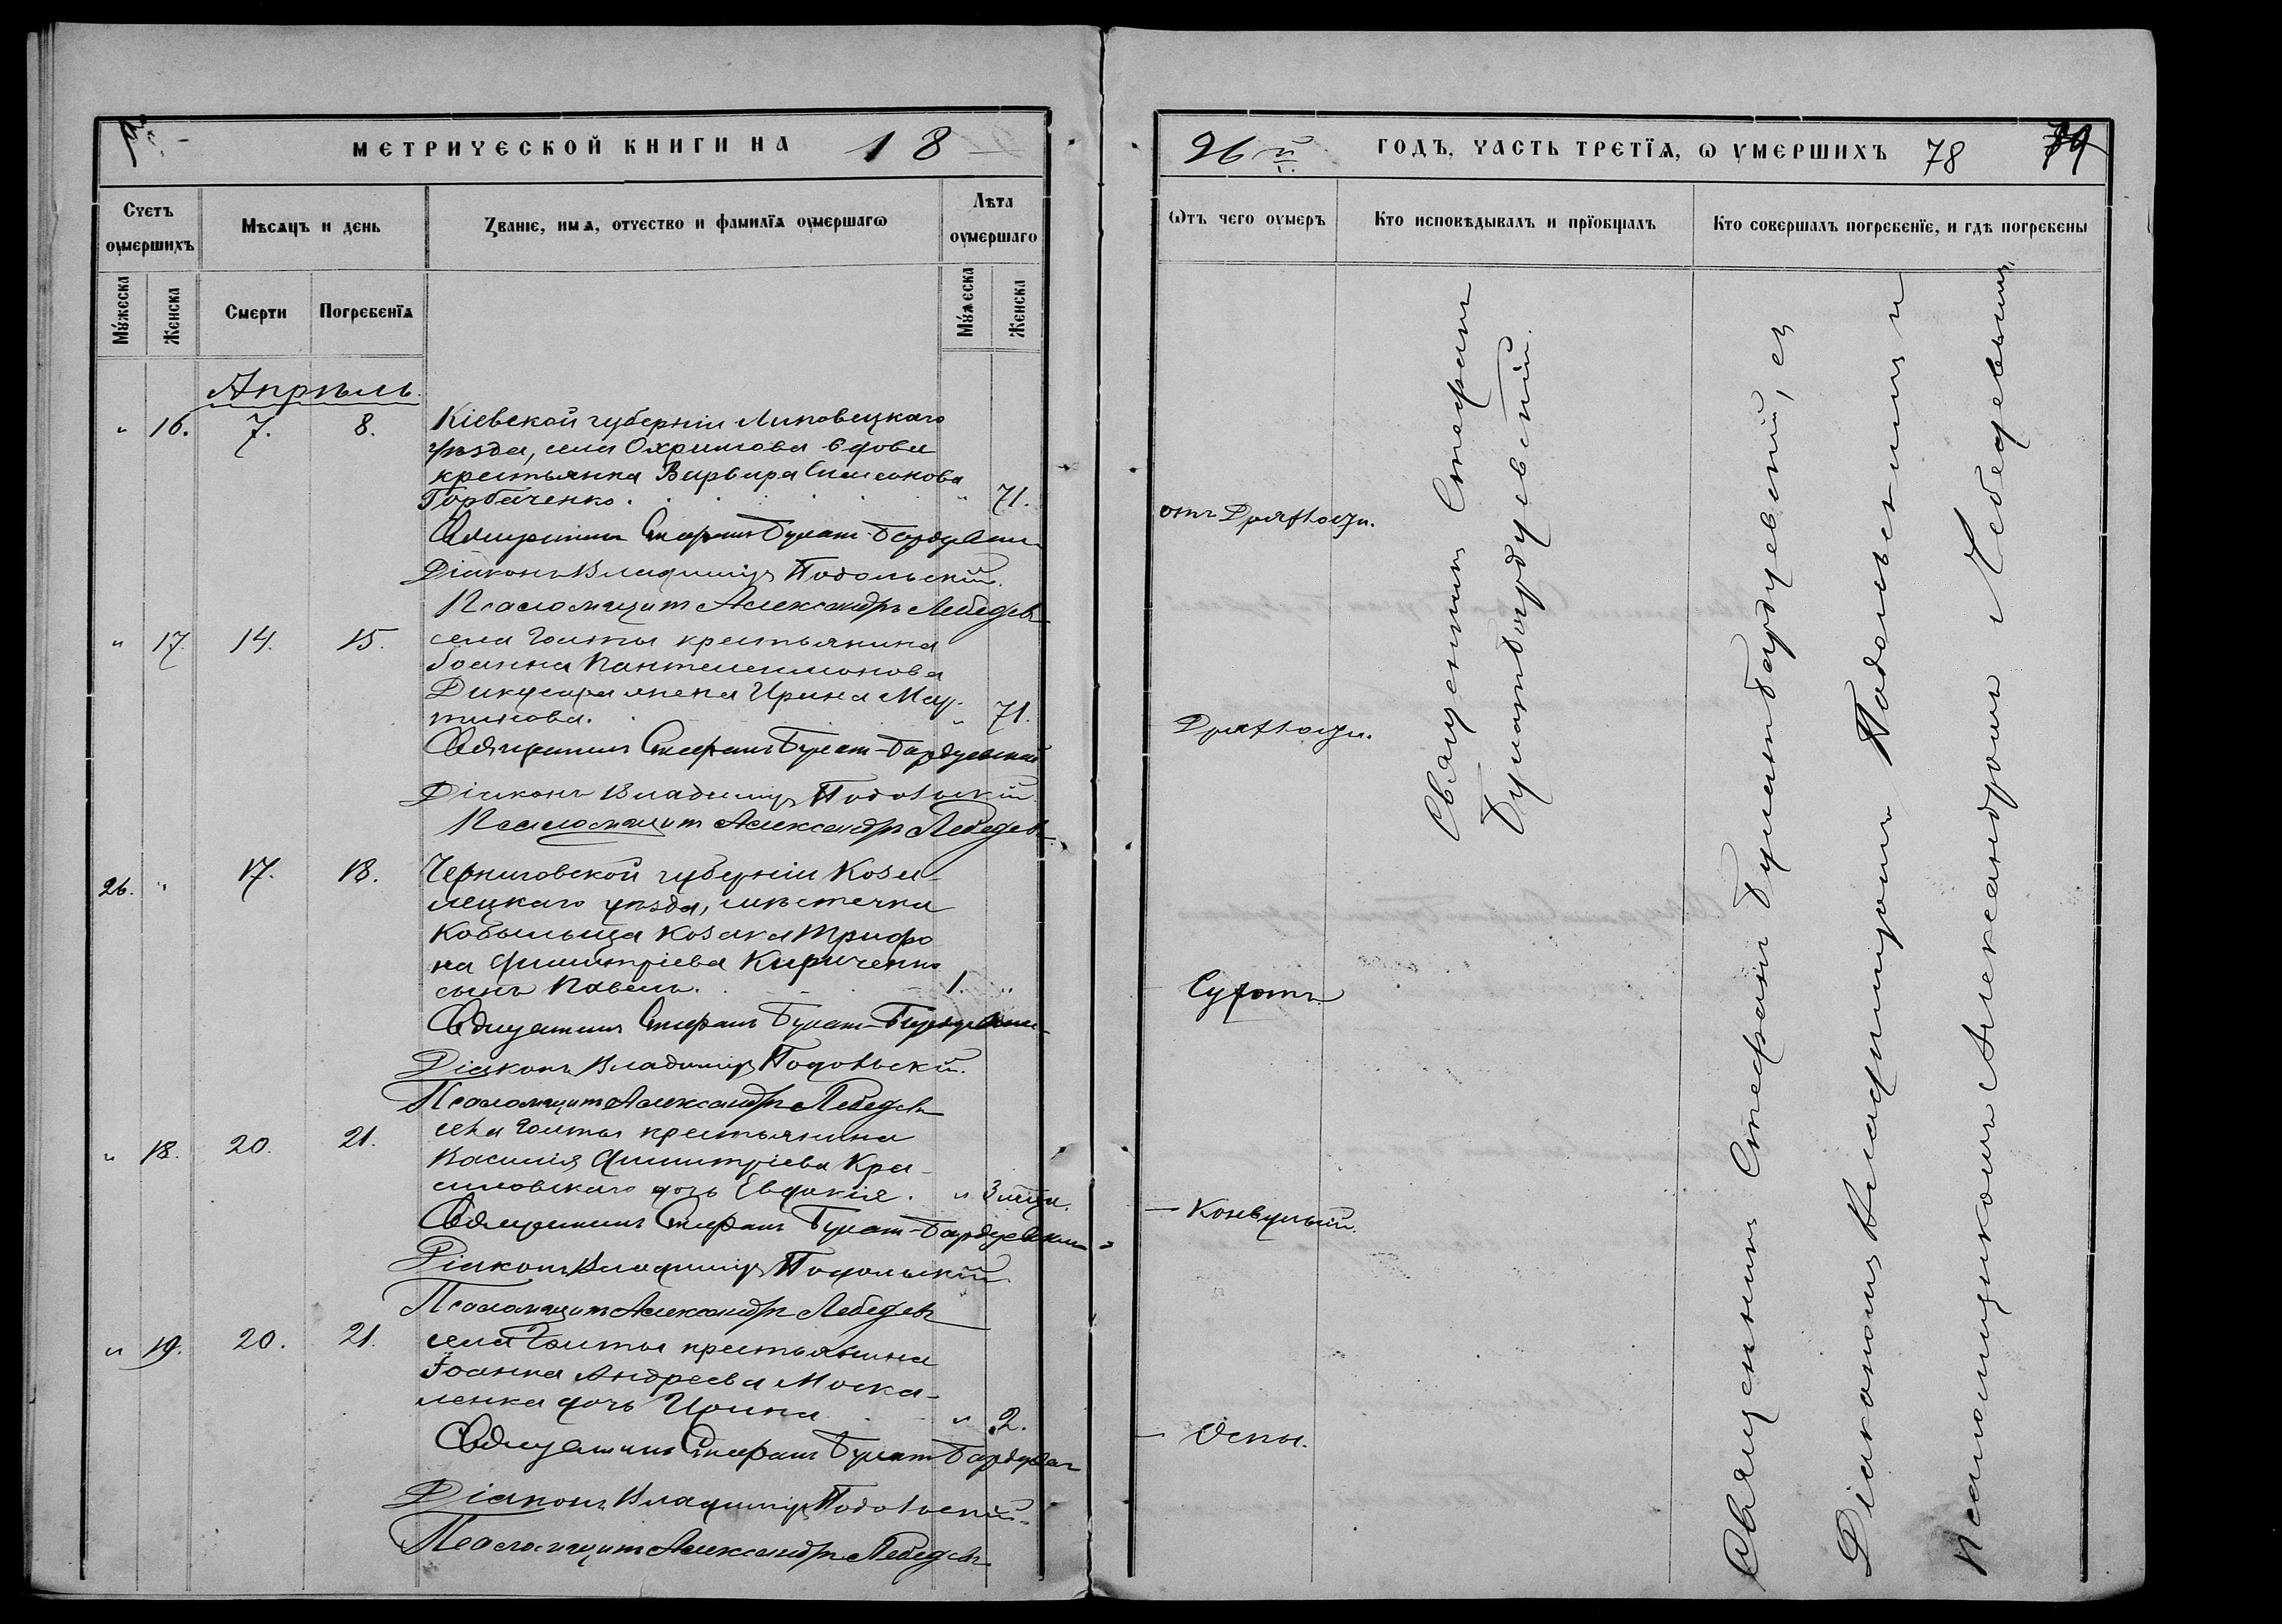 МЕТРИЧЕСКОЙ КНИГИ НА 18
Счетъ умершихъ
Мѣсяцъ и день
Званіе, имя, отчество и фамилія умершагѡ
Лѣта умершаго
Мужеска
Женска
Смерти
Погребенїя
Мужеска
Женска
Апрѣль.
" 16. 7. 8. Кіевской губерніи Липовецкаго
уѣзда, села Охримова вдова
крестьянка Варвара Симеонова
Горбаченко. " 71.
Священникъ Стефанъ Булат-Бардуевскій
Діаконъ Владиміръ Подольскій.
Псаломщикъ Александръ Лебедевъ
" 17. 14. 15. села Голты крестьянина
Іоанна Пантелеимонова
Дикусара жена Ирина Мар-
тинова. " 71.
Священникъ Стефанъ Булат-Бардуевскій
Діаконъ Владиміръ Подольскій
Псаломщикъ Александръ Лебедевъ
26. " 17. 18. Черниговской губерніи Козе-
лецкаго уѣзда, мѣстечка
Кобыльща козака Трифо
на Димитріева Кириченко
сынъ Павелъ. 1. "
Священникъ Стефанъ Булат-Бардуевскій
Діаконъ Владиміръ Подольскій.
Псаломщикъ Александръ Лебедевъ
" 18. 20. 21. села Голты крестьянина
Василія Димитріева Кра-
силовскаго дочь Евдокія. " 3 мѣсц.
Священникъ Стефанъ Булат-Бардуевскій
Діаконъ Владиміръ Подольскій
Псаломщикъ Александръ Лебедевъ
" 19. 20. 21. села Голты крестьянина
Іоанна Андреева Моска-
ленка дочь Ирина " 2.
Священникъ Стефанъ Булат-Бардуевскій
Діаконъ Владиміръ Подольскій.
Псаломщикъ Александръ Лебедевъ
96й. ГОДЪ, ЧАСТЬ ТРЕТЇЯ, Ѡ УМЕРШИХЪ 78
Ѡтъ чего умеръ
Кто исповѣдывалъ и прїобщалъ
Кто совершалъ погребенїе, и гдѣ погребены
отъ Дряхлости.
Дряхлости.
Сухотъ
— Конвульсій.
— Оспы.
Священникъ Стефанъ
Булатъ Бардуевскій.
Священникъ Стефанъ Булатъ Бардуевскій, съ
Діакономъ Владиміромъ Подольскимъ и
Псаломщикомъ Александромъ Лебедевымъ,